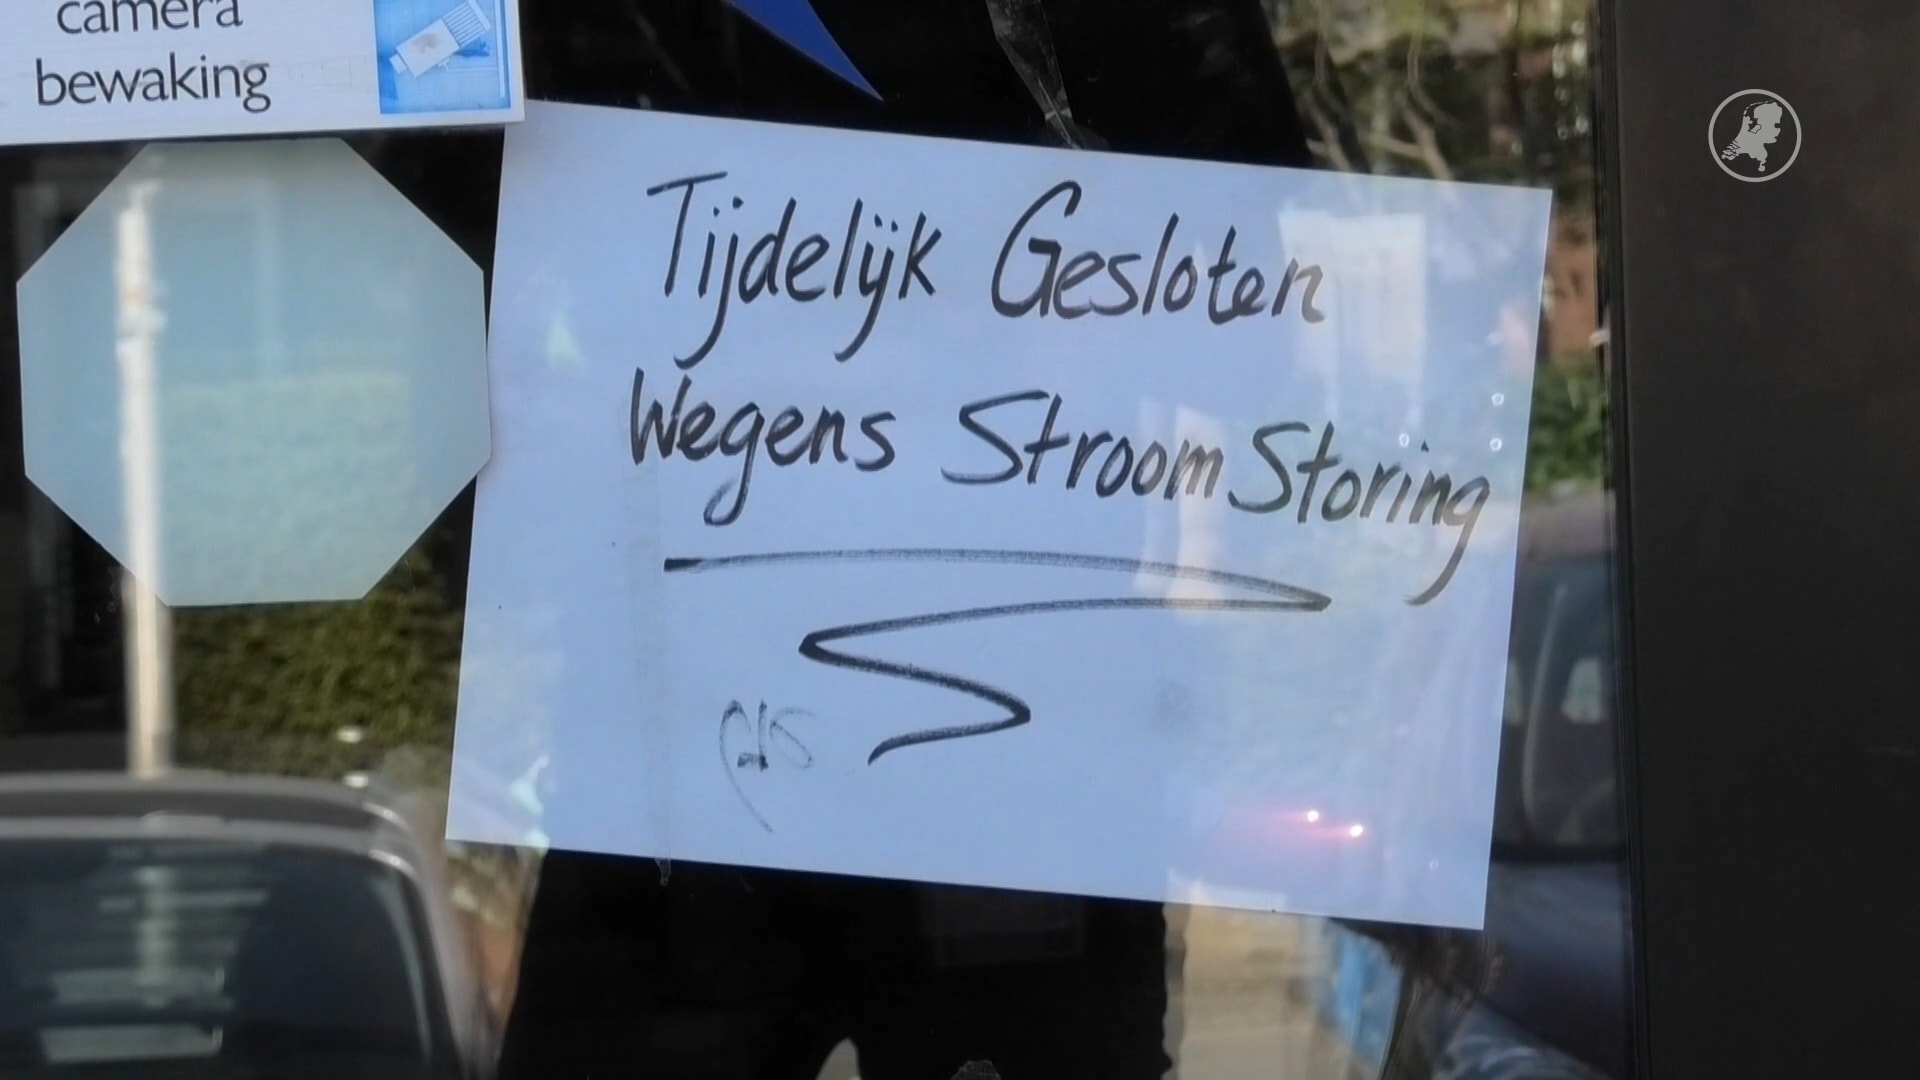 camera
bewaking
Tijdelijk Gesloten
Wegens Stroom Storing